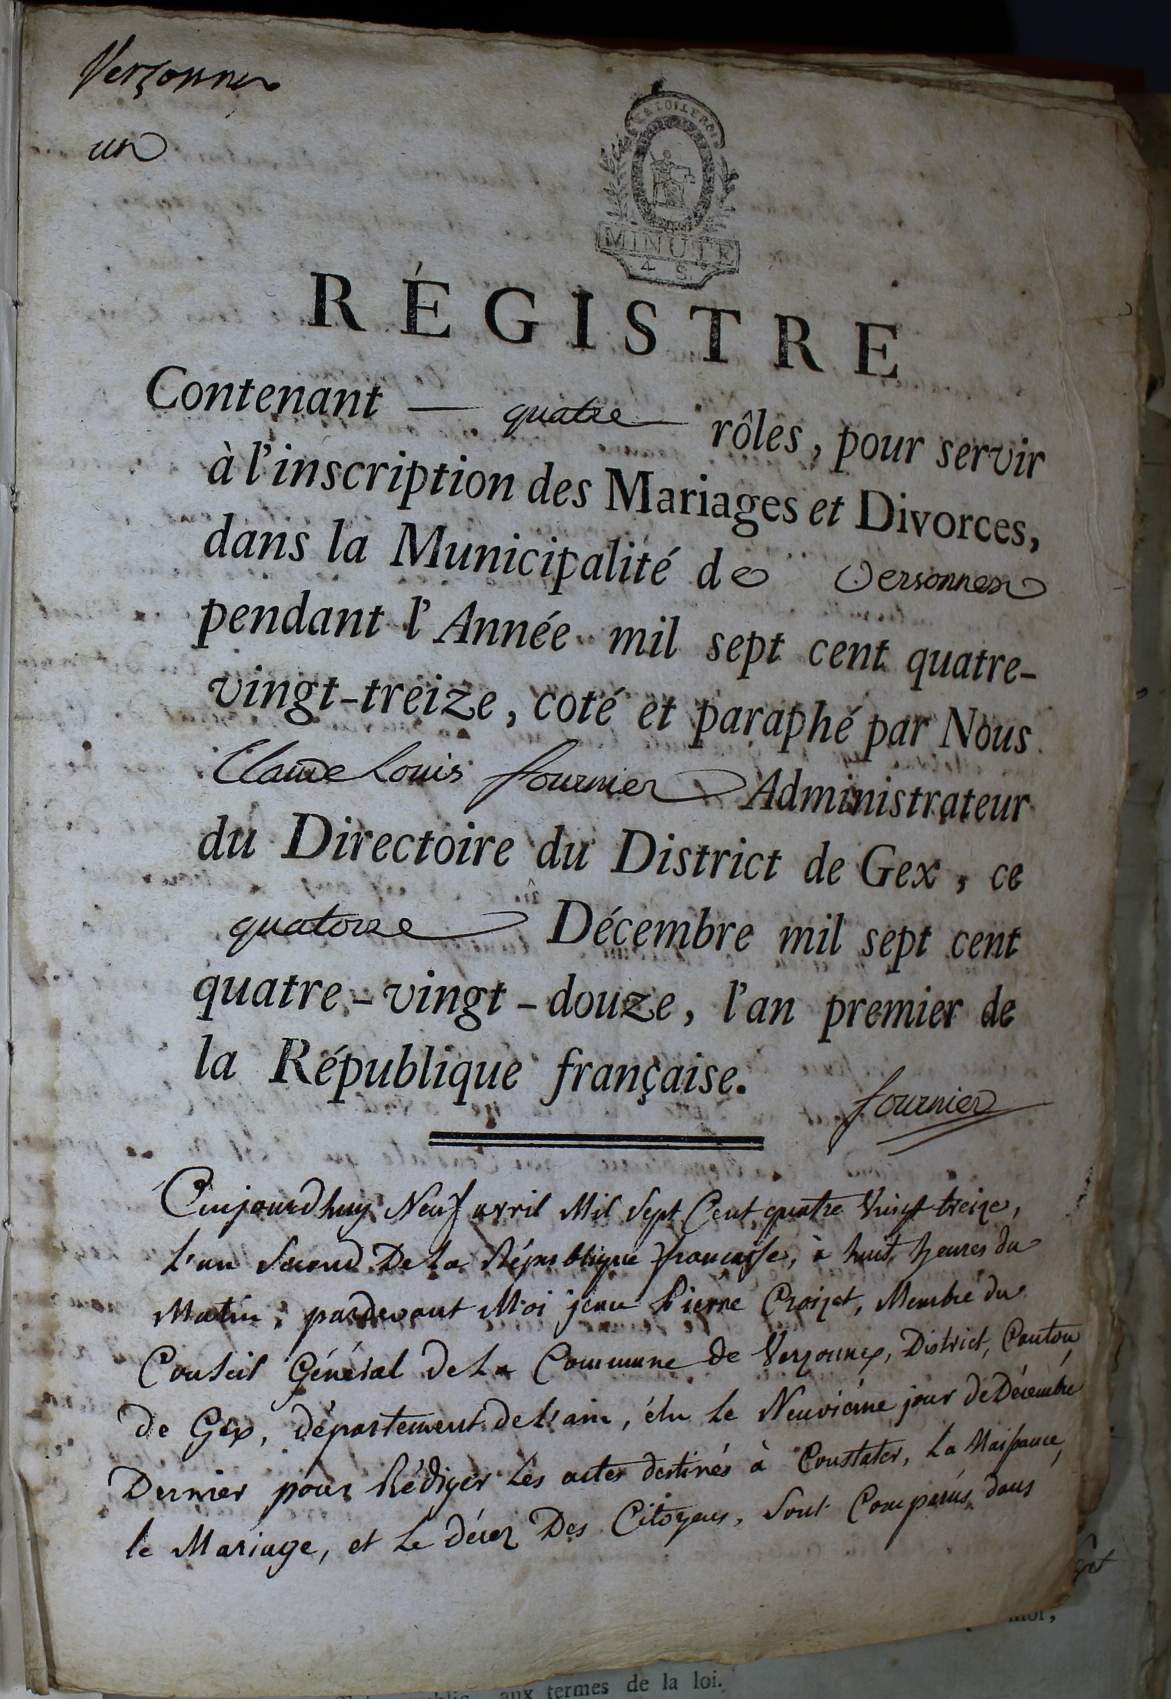 Versonnex
un
LA LOI LE ROI
MINUTE
4 S.
RÉGISTRE
Contenant — quatre rôles, pour servir
à l'inscription des Mariages et Divorces,
dans la Municipalité de Versonnex
pendant l'Année mil sept cent quatre-
vingt-treize, coté et paraphé par Nous
Claude Louis fournier Administrateur
du Directoire du District de Gex, ce
quatorze Décembre mil sept cent
quatre-vingt-douze, l'an premier de
la République française.
fournier
Aujourdhuy Neuf avril Mil Sept Cent quatre Vingt treize,
L'an Second De La République francaise, à huit heures du
Matin, pardevant Moi jean Pierre Croizet, Membre du
Conseil Général de La Commune de Versonnex, District, Canton
de Gex, département de L'ain, élu Le Neuvieme jour de Décembre
Dernier pour Rédiger Les actes destinés à Constater, La Naissance,
le Mariage, et Le décez Des Citoyens, Sont Comparus dans
moi,
aux termes de la loi.